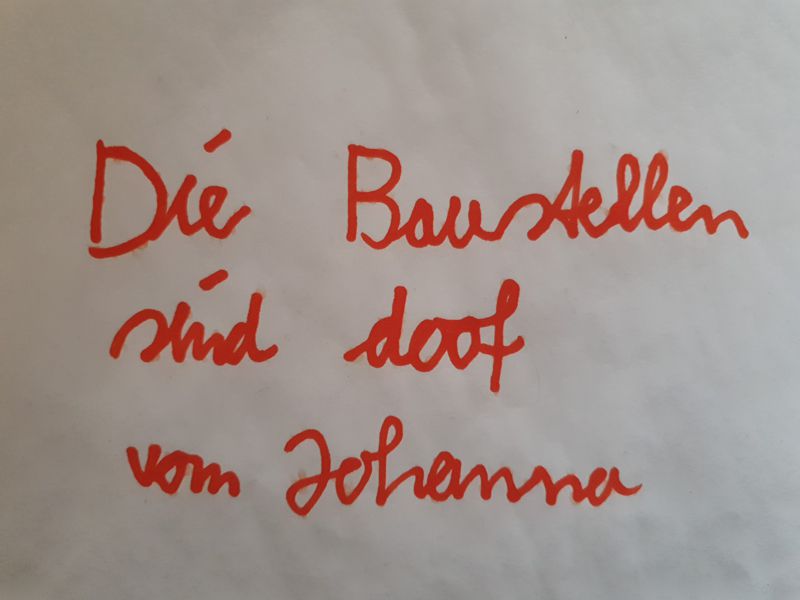 Die Baustellen
sind doof
vom Johanna